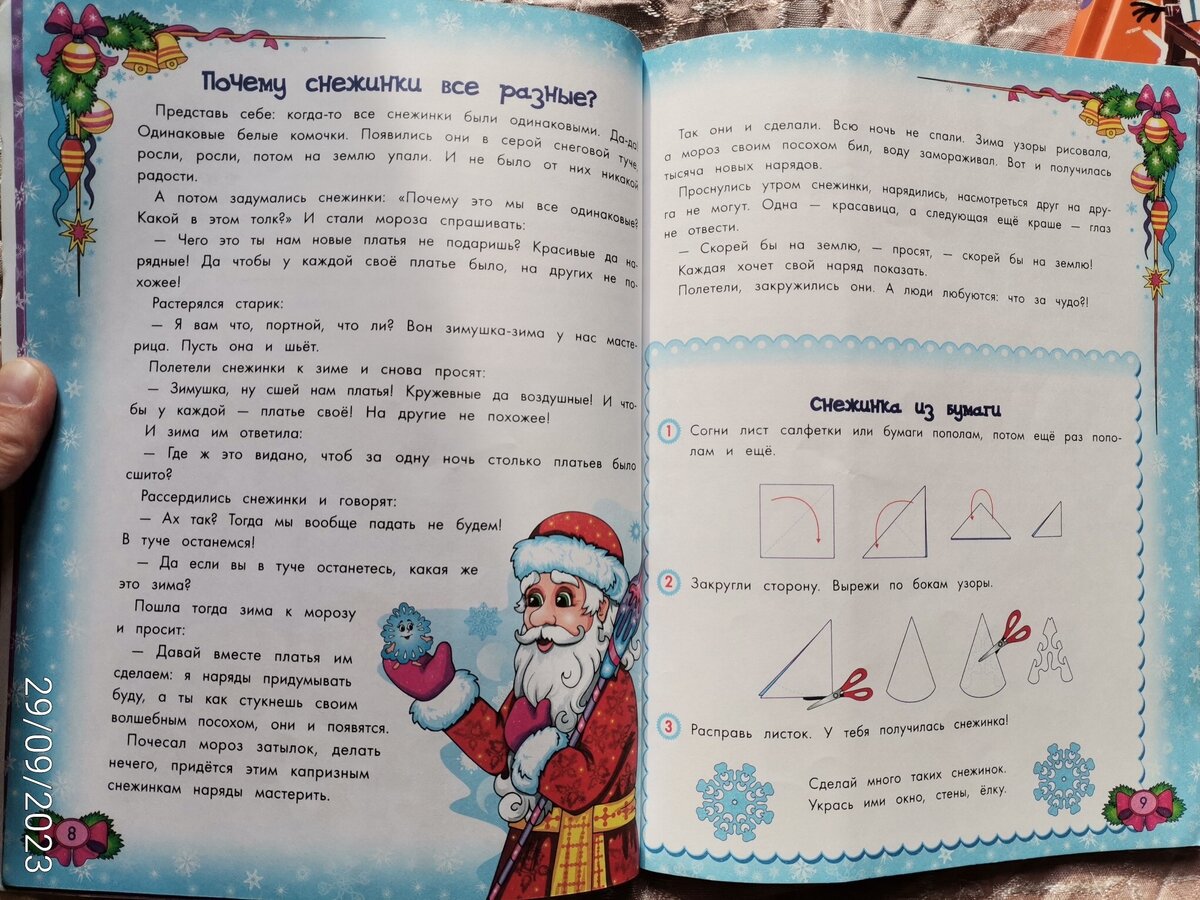 Почему снежинки все разные?
Представь себе: когда-то все снежинки были одинаковыми. Да-да!
Одинаковые белые комочки. Появились они в серой снеговой туче,
росли, росли, потом на землю упали. И не было от них никакой
радости.
А потом задумались снежинки: «Почему это мы все одинаковые?
Какой в этом толк?» И стали мороза спрашивать:
— Чего это ты нам новые платья не подаришь? Красивые да на-
рядные! Да чтобы у каждой своё платье было, на других не по-
хожее!
Растерялся старик:
— Я вам что, портной, что ли? Вон зимушка-зима у нас масте-
рица. Пусть она и шьёт.
Полетели снежинки к зиме и снова просят:
— Зимушка, ну сшей нам платья! Кружевные да воздушные! И что-
бы у каждой — платье своё! На другие не похожее!
И зима им ответила:
— Где ж это видано, чтоб за одну ночь столько платьев было
сшито?
Рассердились снежинки и говорят:
— Ах так? Тогда мы вообще падать не будем!
В туче останемся!
— Да если вы в туче останетесь, какая же
это зима?
Пошла тогда зима к морозу
и просит:
— Давай вместе платья им
сделаем: я наряды придумывать
буду, а ты как стукнешь своим
волшебным посохом, они и появятся.
Почесал мороз затылок, делать
нечего, придётся этим капризным
снежинкам наряды мастерить.
8
29/09/2023
Так они и сделали. Всю ночь не спали. Зима узоры рисовала,
а мороз своим посохом бил, воду замораживал. Вот и получилась
тысяча новых нарядов.
Проснулись утром снежинки, нарядились, насмотреться друг на дру-
га не могут. Одна — красавица, а следующая ещё краше — глаз
не отвести.
— Скорей бы на землю, — просят, — скорей бы на землю!
Каждая хочет свой наряд показать.
Полетели, закружились они. А люди любуются: что за чудо?!
Снежинка из бумаги
1 Согни лист салфетки или бумаги пополам, потом ещё раз попо-
лам и ещё.
2 Закругли сторону. Вырежи по бокам узоры.
3 Расправь листок. У тебя получилась снежинка!
Сделай много таких снежинок.
Укрась ими окно, стены, ёлку.
9